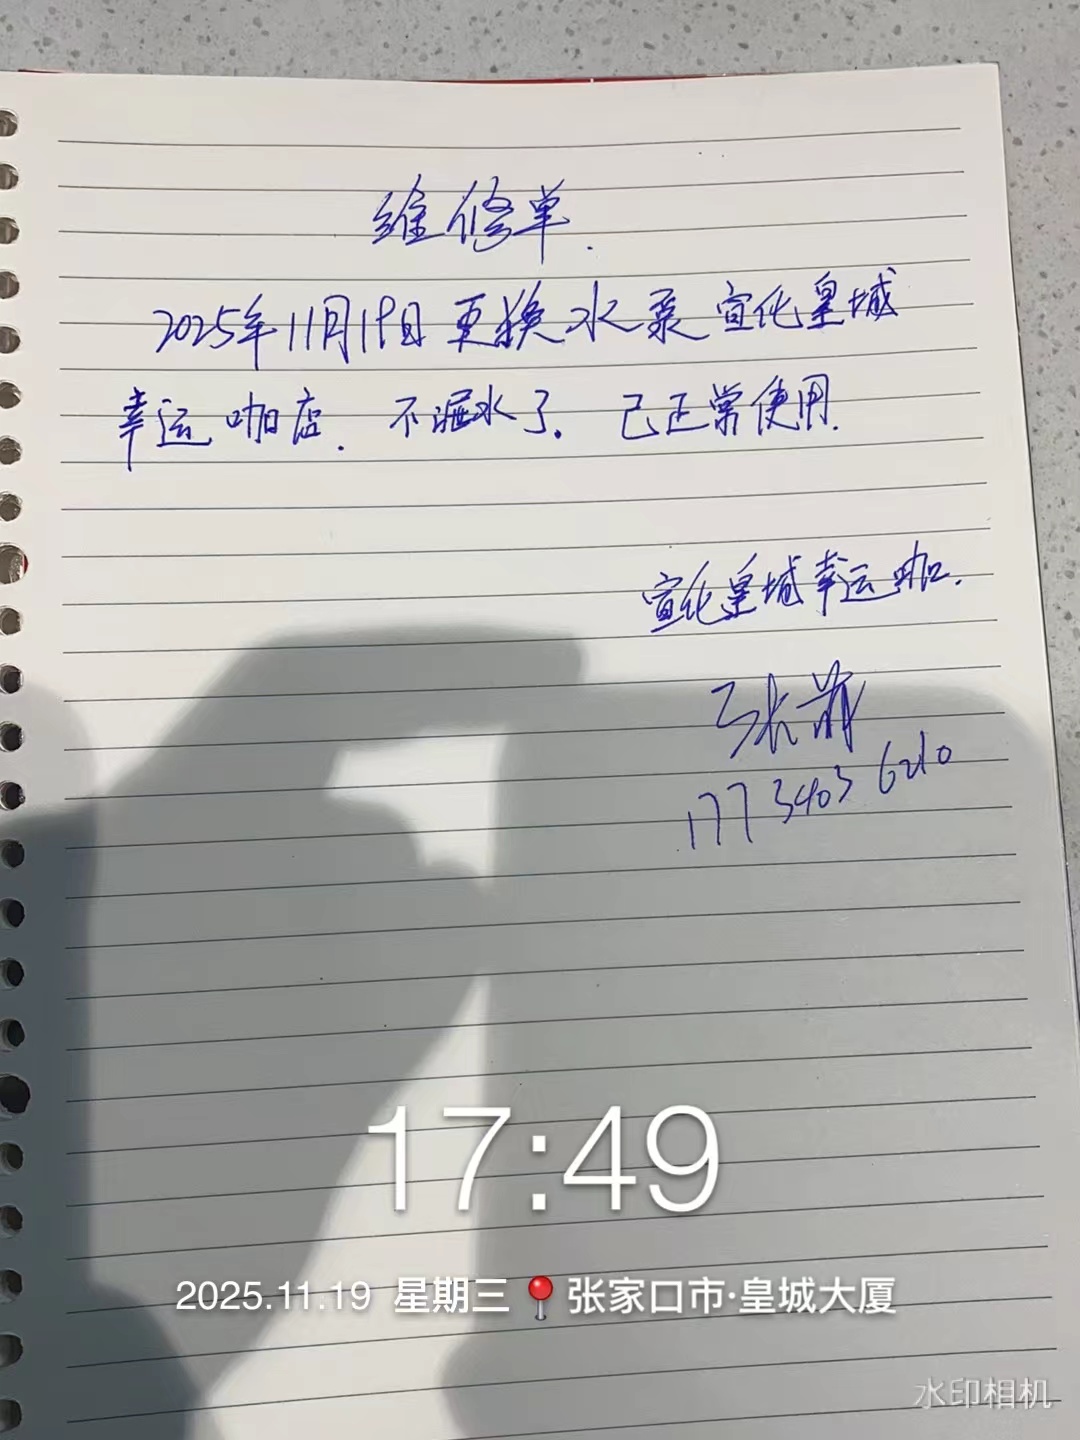 维修单.
2025年11月19日更换水泵宣化皇城
幸运咖店. 不漏水了. 已正常使用.
宣化皇城幸运咖.
张
177 3403 6210
17:49
2025.11.19 星期三 张家口市·皇城大厦
水印相机